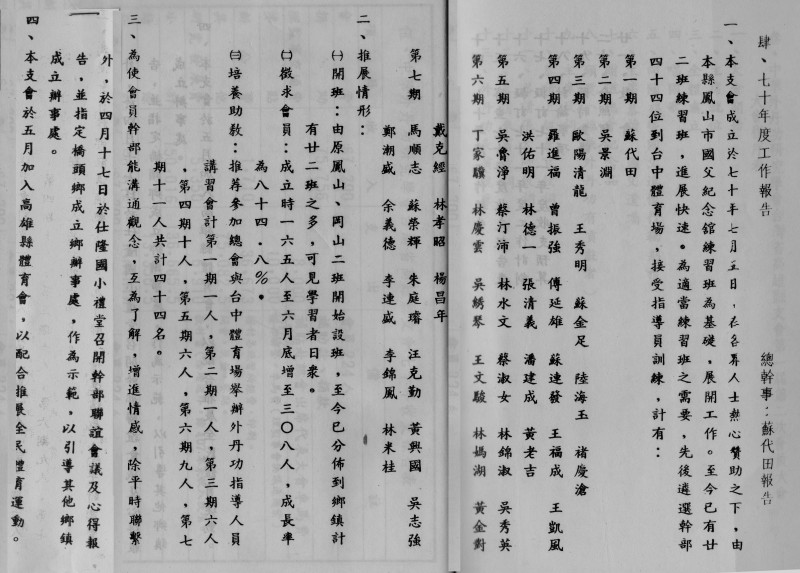 肆、七十年度工作報告
總幹事：蘇代田報告
一、本支會成立於七十年七月五日，在各界人士熱心贊助之下，由
本縣鳳山市國父紀念舘練習班為基礎，展開工作。至今已有廿
二班練習班，進展快速。為適當練習班之需要，先後遴選幹部
四十四位到台中體育場，接受指導員訓練，計有：
第一期 蘇代田
第二期 吳景淵
第三期 歐陽清龍 王秀明 蘇金足 陸海玉 褚慶滄
第四期 羅進福 曾振強 傅延雄 蘇連發 王福成 王凱風
洪佑明 林德一 張清義 潘建成 黃老吉
第五期 吳魯淨 蔡汀沛 林水文 蔡淑女 林錦淑 吳秀英
第六期 丁家驥 林慶雲 吳綉琴 王文駿 林媽湖 黃金對
戴克經 林孝昭 楊昌年
第七期 馬順志 蘇榮輝 朱庭璿 汪克勤 黃興國 吳志強
鄭潮盛 余義德 李連盛 李錦鳳 林米桂
二、推展情形：
㈠開班：由原鳳山、岡山二班開始設班，至今已分佈到鄉鎮計
有廿二班之多，可見學習者日衆。
㈡徵求會員：成立時一六五人至六月底增至三〇八人，成長率
為八十四．八％。
㈢培養助教：推荐參加總會與台中體育場舉辦外丹功指導人員
講習會計第一期一人，第二期一人，第三期六人
，第四期十人，第五期六人，第六期九人，第七
期十一人共計四十四名。
三、為使會員幹部能溝通觀念，互為了解，增進情感，除平時聯繫
外，於四月十七日於仕隆國小禮堂召開幹部聯誼會議及心得報
告，並指定橋頭鄉成立鄉辦事處，作為示範，以引導其他鄉鎮
成立辦事處。
四、本支會於五月加入高雄縣體育會，以配合推展全民體育運動。